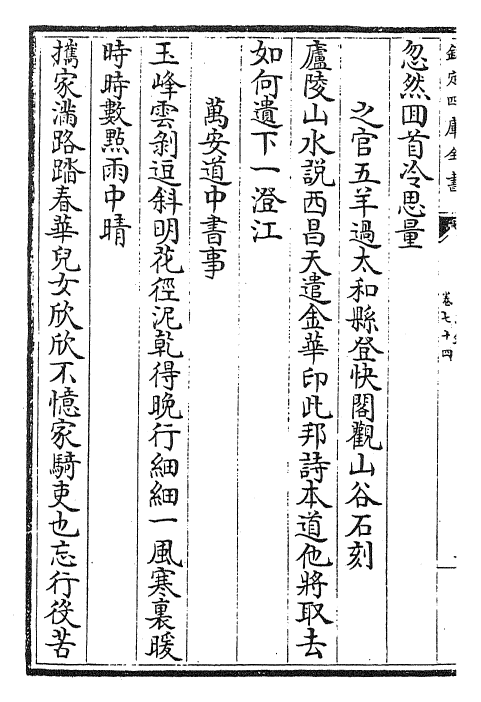 欽定四庫全書
卷七十四
忽然囬首冷思量
之官五羊過太和縣登快閣觀山谷石刻
廬陵山水説西昌天遣金華印此邦詩本道他將取去
如何遺下一澄江
萬安道中書事
玉峰雲剝逗斜明花徑泥乾得晩行細細一風寒裏暖
時時數㸃雨中晴
攜家滿路踏春華兒女欣欣不憶家騎吏也忘行役苦